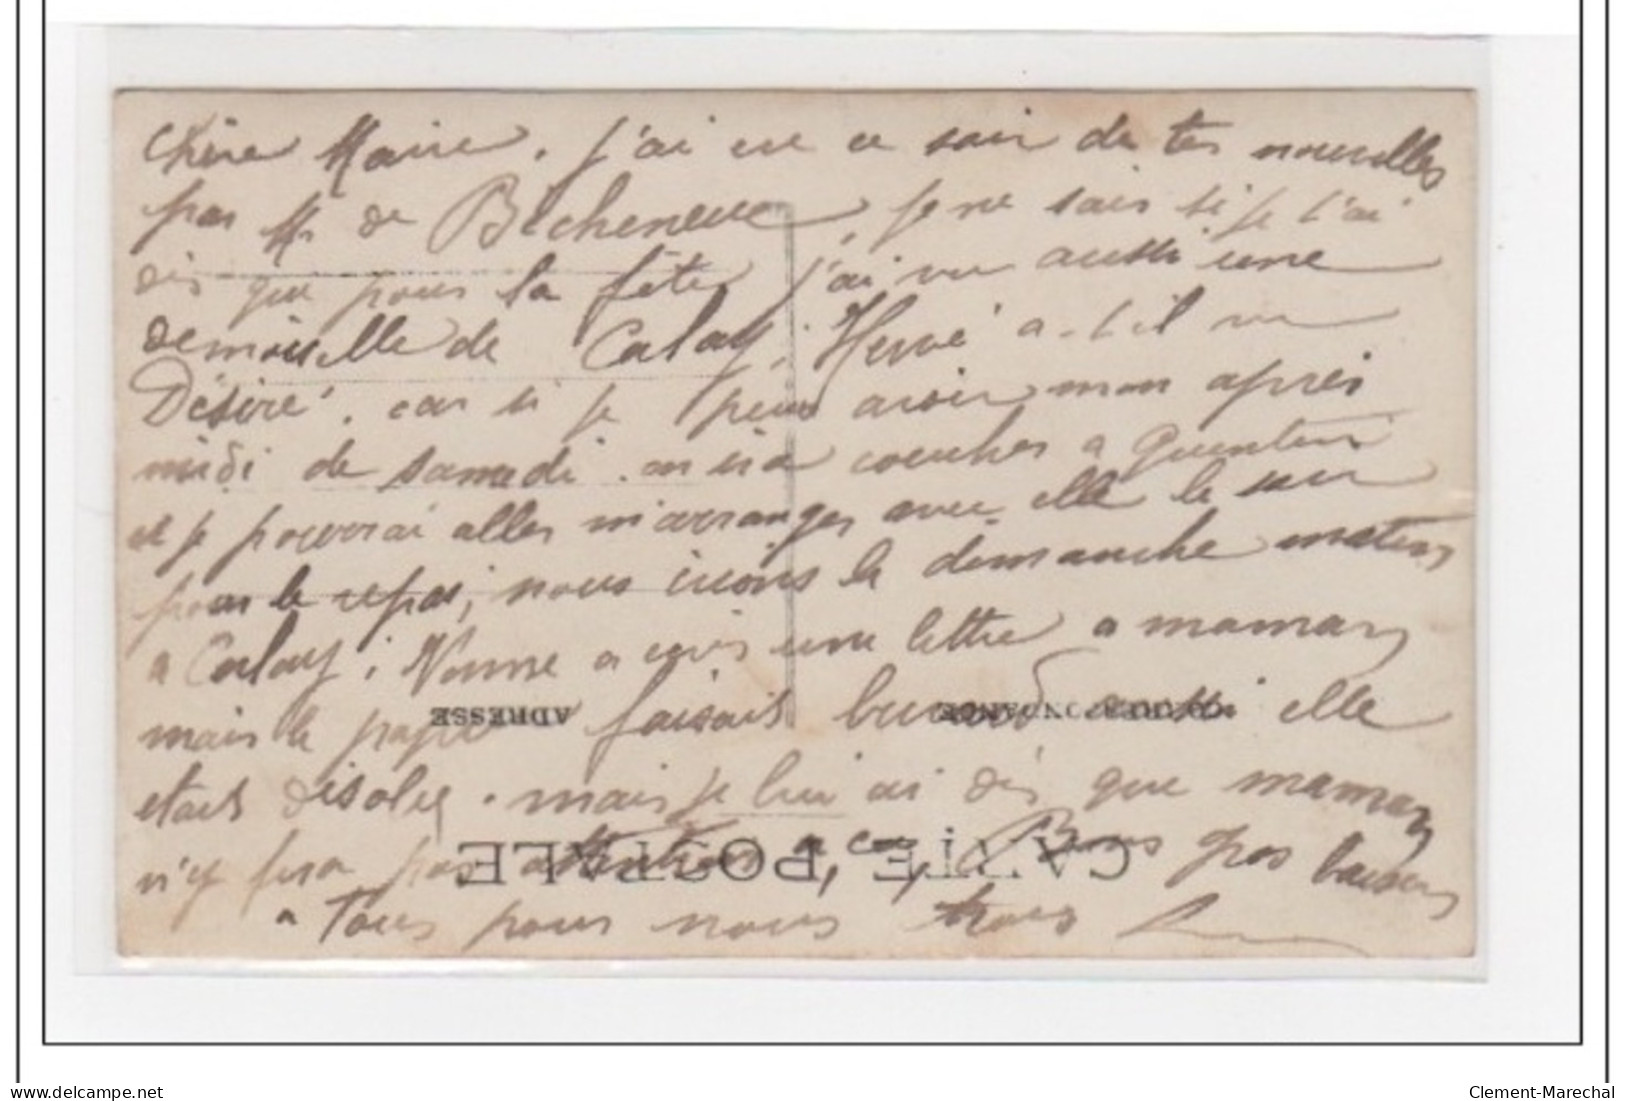 chère Marie, j'ai eu ce soir de tes nouvelles
par Mr de Bicheneue, je ne sais si je t'ai
dès que pour la fête j'ai vu aussi une
demoiselle de Calay; Hervé a-t-il vu
Désiré, car si je peux avoir mon après
midi de samedi. on ira coucher a Quentin
et je pourrai aller m'arranger avec elle le soir
pour le repas, nous irons le dimanche matin
a Calay; Nonne a écris une lettre a maman
mais le papier faisait buvard aussi elle
etait désolée. mais je lui ai dès que maman
n'y fera pas attention a ça, Bons gros baisers
a Tous pour nous trois
ADRESSE
CORRESPONDANCE
CARTE POSTALE
delcampe.net
Clement-Marechal